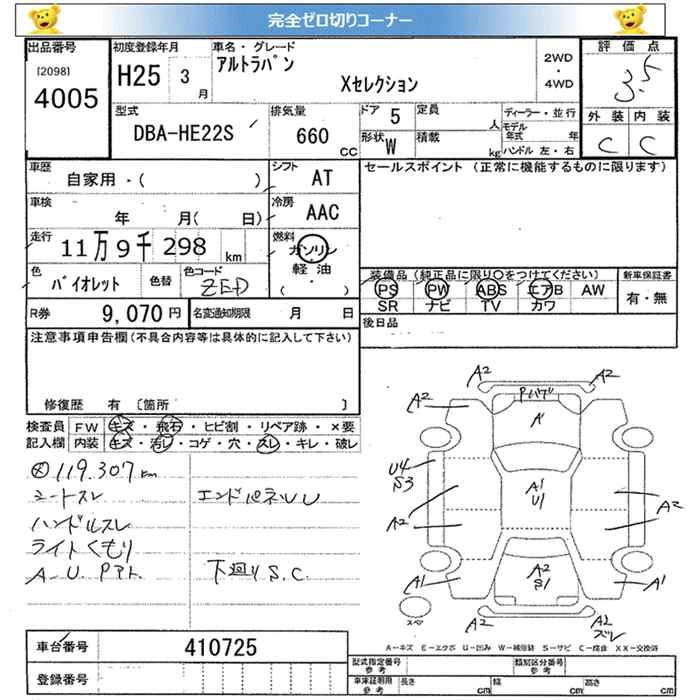 完全ゼロ切りコーナー
出品番号 初度登録年月 車名・グレード 2WD・4WD 評価点
[2098] 4005 H25 3月 アルトラパン Xセレクション 3.5
型式 排気量 ドア 5 定員 人 ディーラー・並行 外装 内装
DBA-HE22S 660 CC 形状 W 積載 kg モデル年式 年 ハンドル 左・右 C C
車歴 自家用・( ) シフト AT セールスポイント (正常に機能するものに限ります)
車検 年 月( 日) 冷房 AAC
走行 11万9千298km 燃料 ガソリン 軽油 ( ・ )
色 バイオレット 色替 色コード ZED 装備品(純正品に限り○をつけてください) 新車保証書
PS PW ABS エアB AW 有・無
SR ナビ TV カワ
R券 9,070円 名変通知期限 月 日 後日品
注意事項申告欄(不具合内容等は具体的に記入して下さい)
修復歴 有 〔箇所 〕
検査員 FW キズ・飛石・ヒビ割・リペア跡・×要
記入欄 内装 キズ・汚レ・コゲ・穴・スレ・キレ・破レ
119.307km
シートスレ エンドパネルU
ハンドルスレ
ライトくもり
A.U. 下廻りS.C.
A2 A2
A2 A1
U4
S3 A1
U1
A2 A2
A1 A2
S1 A1
スペ A2 A2
ズレ
A-キズ E-エクボ U-凹み W-補修跡 S-サビ C-腐食 XX-交換済
車台番号 410725
型式指定番号 参考 類別区分番号 参考
登録番号 車庫証明用 参考 長さ cm 幅 cm 高さ cm